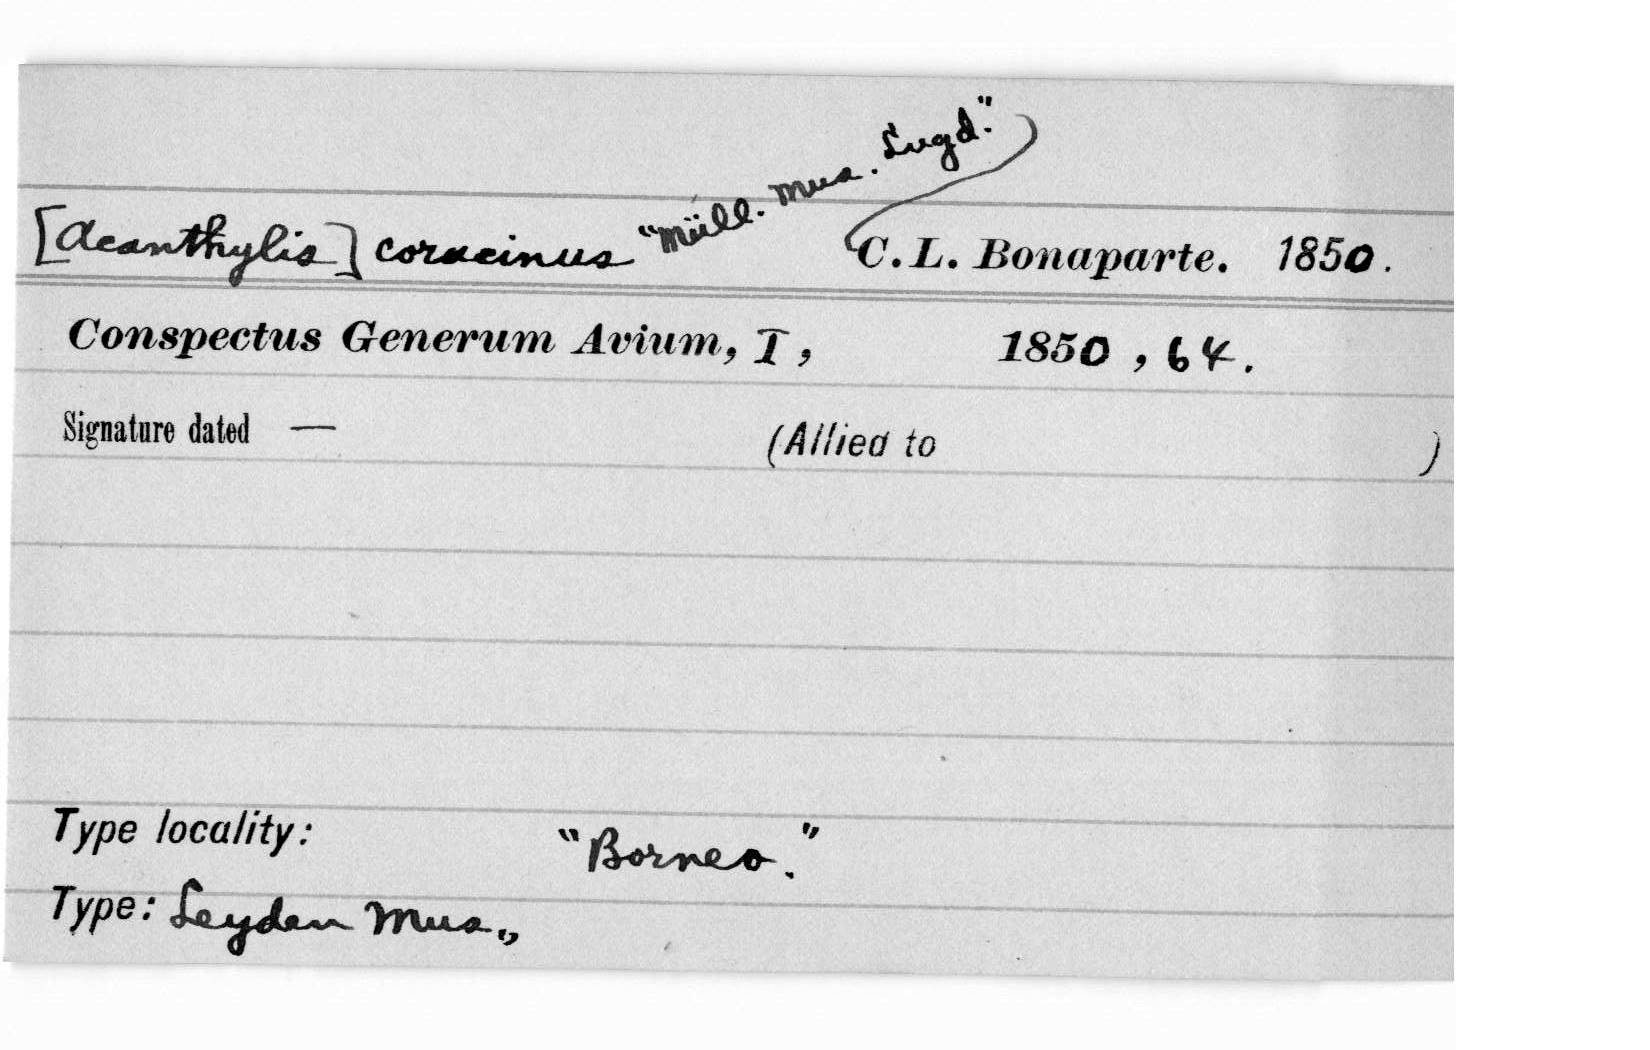 [Acanthylis] coracinus "Müll. Mus. Lugd." C. L. Bonaparte. 1850.
Conspectus Generum Avium, I, 1850, 64.
Signature dated — (Allied to )
Type locality: "Borneo."
Type: Leyden Mus.,